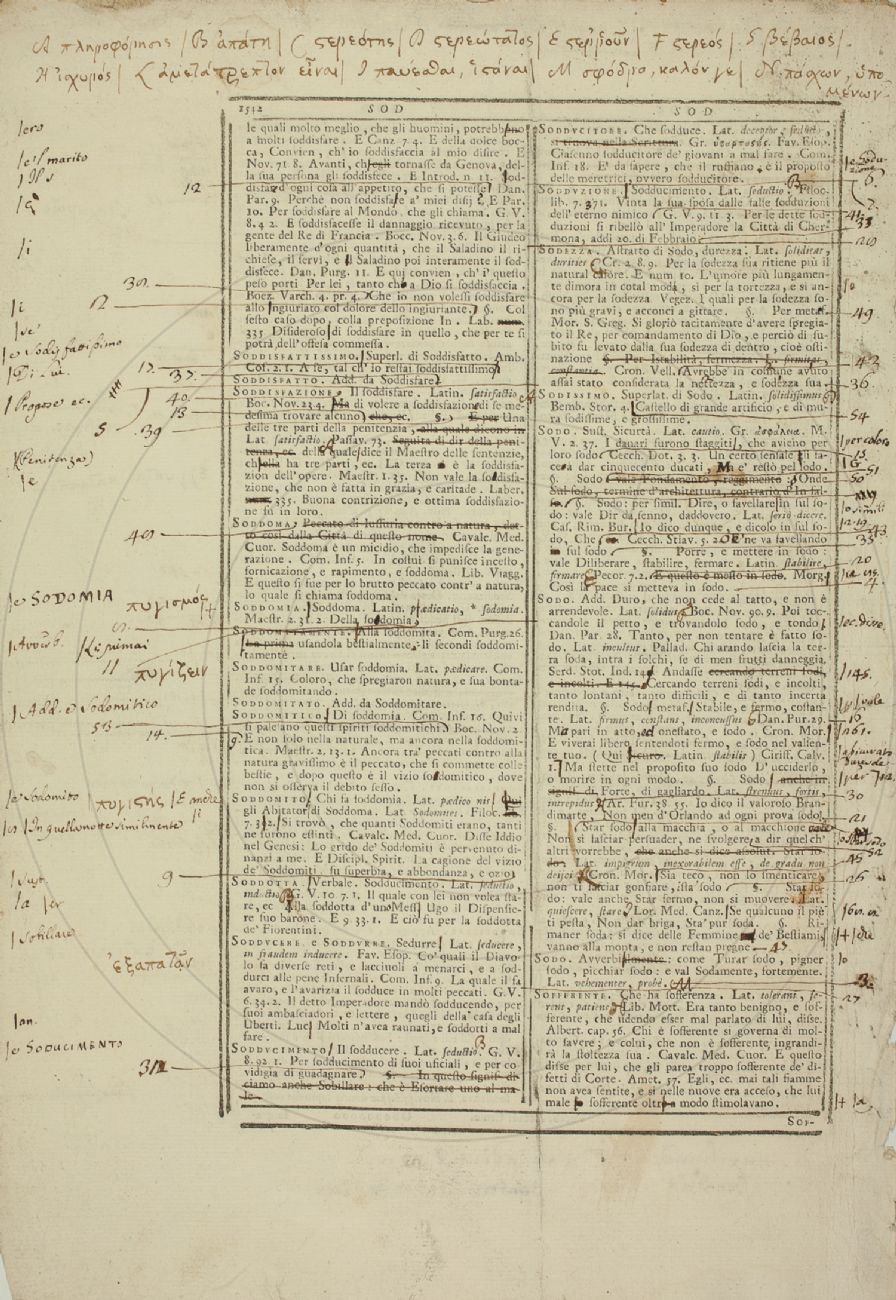 Α πληροφόρησις | Β ἀπάτη | C ςερεότης | D ςερεώτατος | Ε | F ςερεός | G βέβαιος |
Η ἰσχυρός | | Μ σφόδρα, καλόν γε | Ν πάσχων, ὑπο-
μένων.
1542 SOD
le quali molto meglio, che gli huomini, potrebb
a molti soddisfare. E Canz. 7. 4. E della dolce boc-
ca, Convien, ch' io soddisfaccia al mio disire. E
Nov. 71. 8. Avanti, che tornasse da Genova, del-
la sua persona gli soddisfece. E Introd. n. 11. Sod-
disfar d'ogni cosa all'appetito, che si potesse. Dan.
Par. 9. Perchè non soddisfai a' miei disij? E Par.
10. Per soddisfar al Mondo, che gli chiama. G. V.
8. 4. 2. E soddisfacesse il dannaggio ricevuto, per la
gente del Re di Francia. Bocc. Nov. 3. 6. Il Giudeo
liberamente d'ogni quantità, che il Saladino il ri-
chiese, il servì, e il Saladin poi interamente il sod-
disfece. Dan. Purg. 11. E qui convien, ch' i' questo
peso porti Per lei, tanto ch a Dio si soddisfaccia.
Boez. Varch. 4. pr. 4. Che io non volessi soddisfare
allo ingiuriato col dolore dello ingiuriante. §. Col
sesto caso dopo, colla preposizione In. Lab.
335. Disideroso di soddisfare in quello, che per te si
potrà dell' offesa commessa.
SODDISFATTISSIMO. Superl. di Soddisfatto. Amb.
Cof. 2. 1. A se, tal ch' io restai soddisfattissimo.
SODDISFATTO. Add. da Soddisfare.
SODDISFAZIONE. Il soddisfare. Latin. satisfactio.
Bocc. Nov. 23. 4. Ma di volere a soddisfazione di se me-
desima trovare alcuno, che, ec. §. E per Una
delle tre parti della penitenzia, alla quale dicono in
Lat. satisfactio. Passav. 73. Seguita di dir della peni-
tenza, ec. della quale dice il Maestro delle sentenzie,
ch ella ha tre parti, ec. La terza è la soddisfa-
zion dell' opere. Maestr. 1. 35. Non vale la soddisfa-
zione, che non è fatta in grazia, e caritade. Laber.
335. Buona contrizione, e ottima soddisfazio-
ne fu in loro.
SODDOMA. Peccato di lussuria contro a natura, det-
to così dalla Città di questo nome. Cavalc. Med.
Cuor. Soddoma è un micidio, che impedisce la gene-
razione. Com. Inf. 5. In costui si punisce incesto,
fornicazione, e rapimento, e soddoma. Lib. Viagg.
E questo si fue per lo brutto peccato contr' a natura,
lo quale si chiama soddoma.
SODDOMIA. Soddoma. Latin. pædicatio, * sodomia.
Maestr. 2. 31. 2. Della soddomia.
SODDOMITAMENTE. Alla soddomita. Com. Purg. 26.
usandola bestialmente. Li secondi soddomi-
tamente.
SODDOMITARE. Usar soddomia. Lat. pædicare. Com.
Inf. 15. Coloro, che spregiaron natura, e sua bonta-
de soddomitando.
SODDOMITATO. Add. da Soddomitare.
SODDOMITICO. Di soddomia. Com. Inf. 16. Quivi
si palesano questi spiriti soddomitichi. Boc. Nov. 2.
9. E non solo nella naturale, ma ancora nella soddomi-
tica. Maestr. 2. 13. 1. Ancora tra' peccati contro alla
natura gravissimo è il peccato, che si commette colle
bestie, e dopo questo è il vizio soddomitico, dove
non si osserva il debito sesso.
SODDOMITO. Chi fa soddomia. Lat. pædico nis.
gli Abitator di Soddoma. Lat. Sodomites. Filoc.
7. 332. Si trovò, che quanti Soddomiti erano, tanti
ne furono estinti. Cavalc. Med. Cuor. Disse Iddio
nel Genesi: Lo grido de' Soddomiti è pervenuto di-
nanzi a me. E Discipl. Spirit. La cagione del vizio
de' Soddomiti fu superbia, e abbondanza, e ozio.
SODDOTTA. Verbale. Sodducimento. Lat. seductio,
inductio. G. V. 10. 7. 1. Il quale con lei non volea sta-
re, ec. Alla soddotta d'uno Mess. Ugo il Dispensie-
re suo barone. E 9. 33. 1. E ciò fu per la soddotta
de' Fiorentini.
SODDUCERE, e SODDURRE. Sedurre. Lat. seducere,
in fraudem inducere. Fav. Esop. Co' quali il Diavo-
lo fa diverse reti, e lacciuoli a menarci, e a sod-
durci alle pene Infernali. Com. Inf. 9. La quale il fa
avaro, e l'avarizia il sodduce in molti peccati. G. V.
6. 34. 2. Il detto Imperadore mandò sodducendo, per
suoi ambasciadori, e lettere, quegli della casa degli
Uberti. Luc. Molti n'avea raunati, e soddotti a mal
fare.
SODDUCIMENTO. Il sodducere. Lat. seductio. G. V.
8. 92. 1. Per sodducimento di suoi uficiali, e per co-
vidigia di guadagnare. §. In questo signif. di-
ciamo anche Sobillare: che è Esortare uno al ma-
le.
SOD
SODDUCITORE. Che sodduce. Lat. deceptor, seductor,
si truova nella Scrittura. Gr. Fav. Esop.
Ciascuno sodducitore de' giovani a mal fare. Com.
Inf. 18. E' da sapere, che il ruffiano, è il proposto
delle meretrici, ovvero sodducitore.
SODDUZIONE. Sodducimento. Lat. seductio. Filoc.
lib. 7. 371. Vinta la sua sposa dalle false sodduzioni
dell' eterno nimico. G. V. 9. 11. 3. Per le dette sod-
duzioni si ribellò all' Imperadore la Città di Cher-
mona, addì 20. di Febbraio.
SODEZZA. Astratto di Sodo, durezza. Lat. soliditas,
durities. Cr. 2. 8. 9. Per la sodezza sua ritiene più il
natural calore. E num. 10. L'umore più lungamen-
te dimora in cotal modo, si per la tortezza, e si an-
cora per la sodezza. Vegez. I quali per la sodezza so-
no più gravi, e acconci a gittare. §. Per metaf.
Mor. S. Greg. Si gloriò tacitamente d'avere spregia-
to il Re, per comandamento di Dio, e perciò di su-
bito fu levato dalla sua sodezza di dentro, cioè osti-
nazione. §. Per Istabilità, fermezza. L. firmitas,
constantia. Cron. Vell. Avrebbe in comune avuto
assai stato considerata la nettezza, e sodezza sua.
SODISSIMO. Superlat. di Sodo. Latin. solidissimus.
Bemb. Stor. 4. Castello di grande artificio, e di mu-
ra sodissime, e grossissime.
SODO. Sust. Sicurtà. Lat. cautio. Gr. ἀσφάλεια. M.
V. 2. 37. I danari furono staggiti, che avieno per
loro sodo. Cecch. Dot. 3. 3. Un certo sensale li fa-
cea dar cinquecento ducati, Ma e' restò pel sodo.
§. Sodo vale Fondamento, reggimento: Onde
Sul sodo, termine d'architettura, contrario d'In fal-
so. §. Sodo: per simil. Dire, o favellare in sul so-
do: vale Dir da senno, daddovero. Lat. serio dicere.
Cas. Rim. Bur. Io dico dunque, e dicolo in sul so-
do, Che Cecch. Stiav. 5. 2. 'ne va favellando
in sul sodo. §. Porre, e mettere in sodo:
vale Diliberare, stabilire, fermare. Latin. stabilire,
firmare. Pecor. 7. 2. E questo è messo in sodo. Morg.
Così la pace si metteva in sodo.
SODO. Add. Duro, che non cede al tatto, e non è
arrendevole. Lat. solidus. Boc. Nov. 90. 9. Poi toc-
candole il petto, e trovandolo sodo, e tondo.
Dan. Par. 28. Tanto, per non tentare è fatto so-
do. Lat. incultus. Pallad. Chi arando lascia la ter-
ra soda, intra i solchi, se di men frutti danneggia.
Serd. Stot. Ind. 14. Andasse cercando terreni sodi,
e incolti. E 144. Cercando terreni sodi, e incolti,
tanto lontani, tanto difficili, e di tanto incerta
rendita. §. Sodo metaf. Stabile, e fermo, costan-
te. Lat. firmus, constans, inconcussus. Dan. Pur. 29.
Ma pari in atto, ed onestato, e sodo. Cron. Mor.
E viverai libero sentendoti fermo, e sodo nel valsen-
te tuo. (Qui sicuro. Latin. stabilis) Ciriff. Calv.
1. Ma stette nel proposito suo sodo D'ucciderlo,
o morire in ogni modo. §. Sodo, anche in
signif. di Forte, di gagliardo. Lat. strenuus, fortis,
intrepidus. Ar. Fur. 38. 55. Io dico il valoroso Bran-
dimarte, Non men d'Orlando ad ogni prova sodo.
§. Star sodo alla macchia, o al macchione
Non si lasciar persuader, ne svolgere a dir quel ch'
altri vorrebbe, che anche si dice assolut. Star so-
do. Lat. imperium, inexorabilem esse, de gradu non
deijci. Cron. Mor. Sia teco, non lo smenticare,
non ti lasciar gonfiare, sta sodo. §. Star so-
do: vale anche Star fermo, non si muovere. Lat.
quiescere, stare. Lor. Med. Canz. Se qualcuno il piè
ti pesta, Non dar briga, Sta' pur soda. §. Ri-
maner soda: si dice delle Femmine de' Bestiami,
vanno alla monta, e non restan pregne.
SODO. Avverbialmente: come Turar sodo, pigner
sodo, picchiar sodo: e val Sodamente, fortemente.
Lat. vehementer, probè.
SOFFERENTE. Che ha sofferenza. Lat. tolerans, fe-
rens, patiens. Lib. Mott. Era tanto benigno, e sof-
ferente, che udendo esser mal parlato di lui, disse.
Albert. cap. 56. Chi è sofferente si governa di mol-
to savere; e colui, che non è sofferente, ingrandi-
rà la stoltezza sua. Cavalc. Med. Cuor. E questo
disse per lui, che gli parea troppo sofferente de' di-
fetti di Corte. Amet. 57. Egli, ec. mai tali fiamme
non avea sentite, e si nelle nuove era acceso, che lui
male sofferente oltra modo stimolavano.
SOF-
|ero
|e'l marito
|i
12
30.
|i
12
|e Soddisfattissimo
|Di
17.
37.
40
13
|Propose ec.
5
39
|(Penitenza)
|e
40
|e SODOMIA
πυγισμός
|Avverb.
|Li primai
11
πυγίζειν
|Add. e Sodomitico
53
14.
|e Sodomito
πυγιστής | E anche
|In quella notte similmente
9
|Sust.
|Sobillare
ἐξαπατᾶν
|an.
|e SODUCIMENTO
31
6.
7.
33
29
49
43
36
54
|per coloro
15
51
50
43
35
20
|ec. dire.
|145.
|vale
30
21
45
52
26
43
27